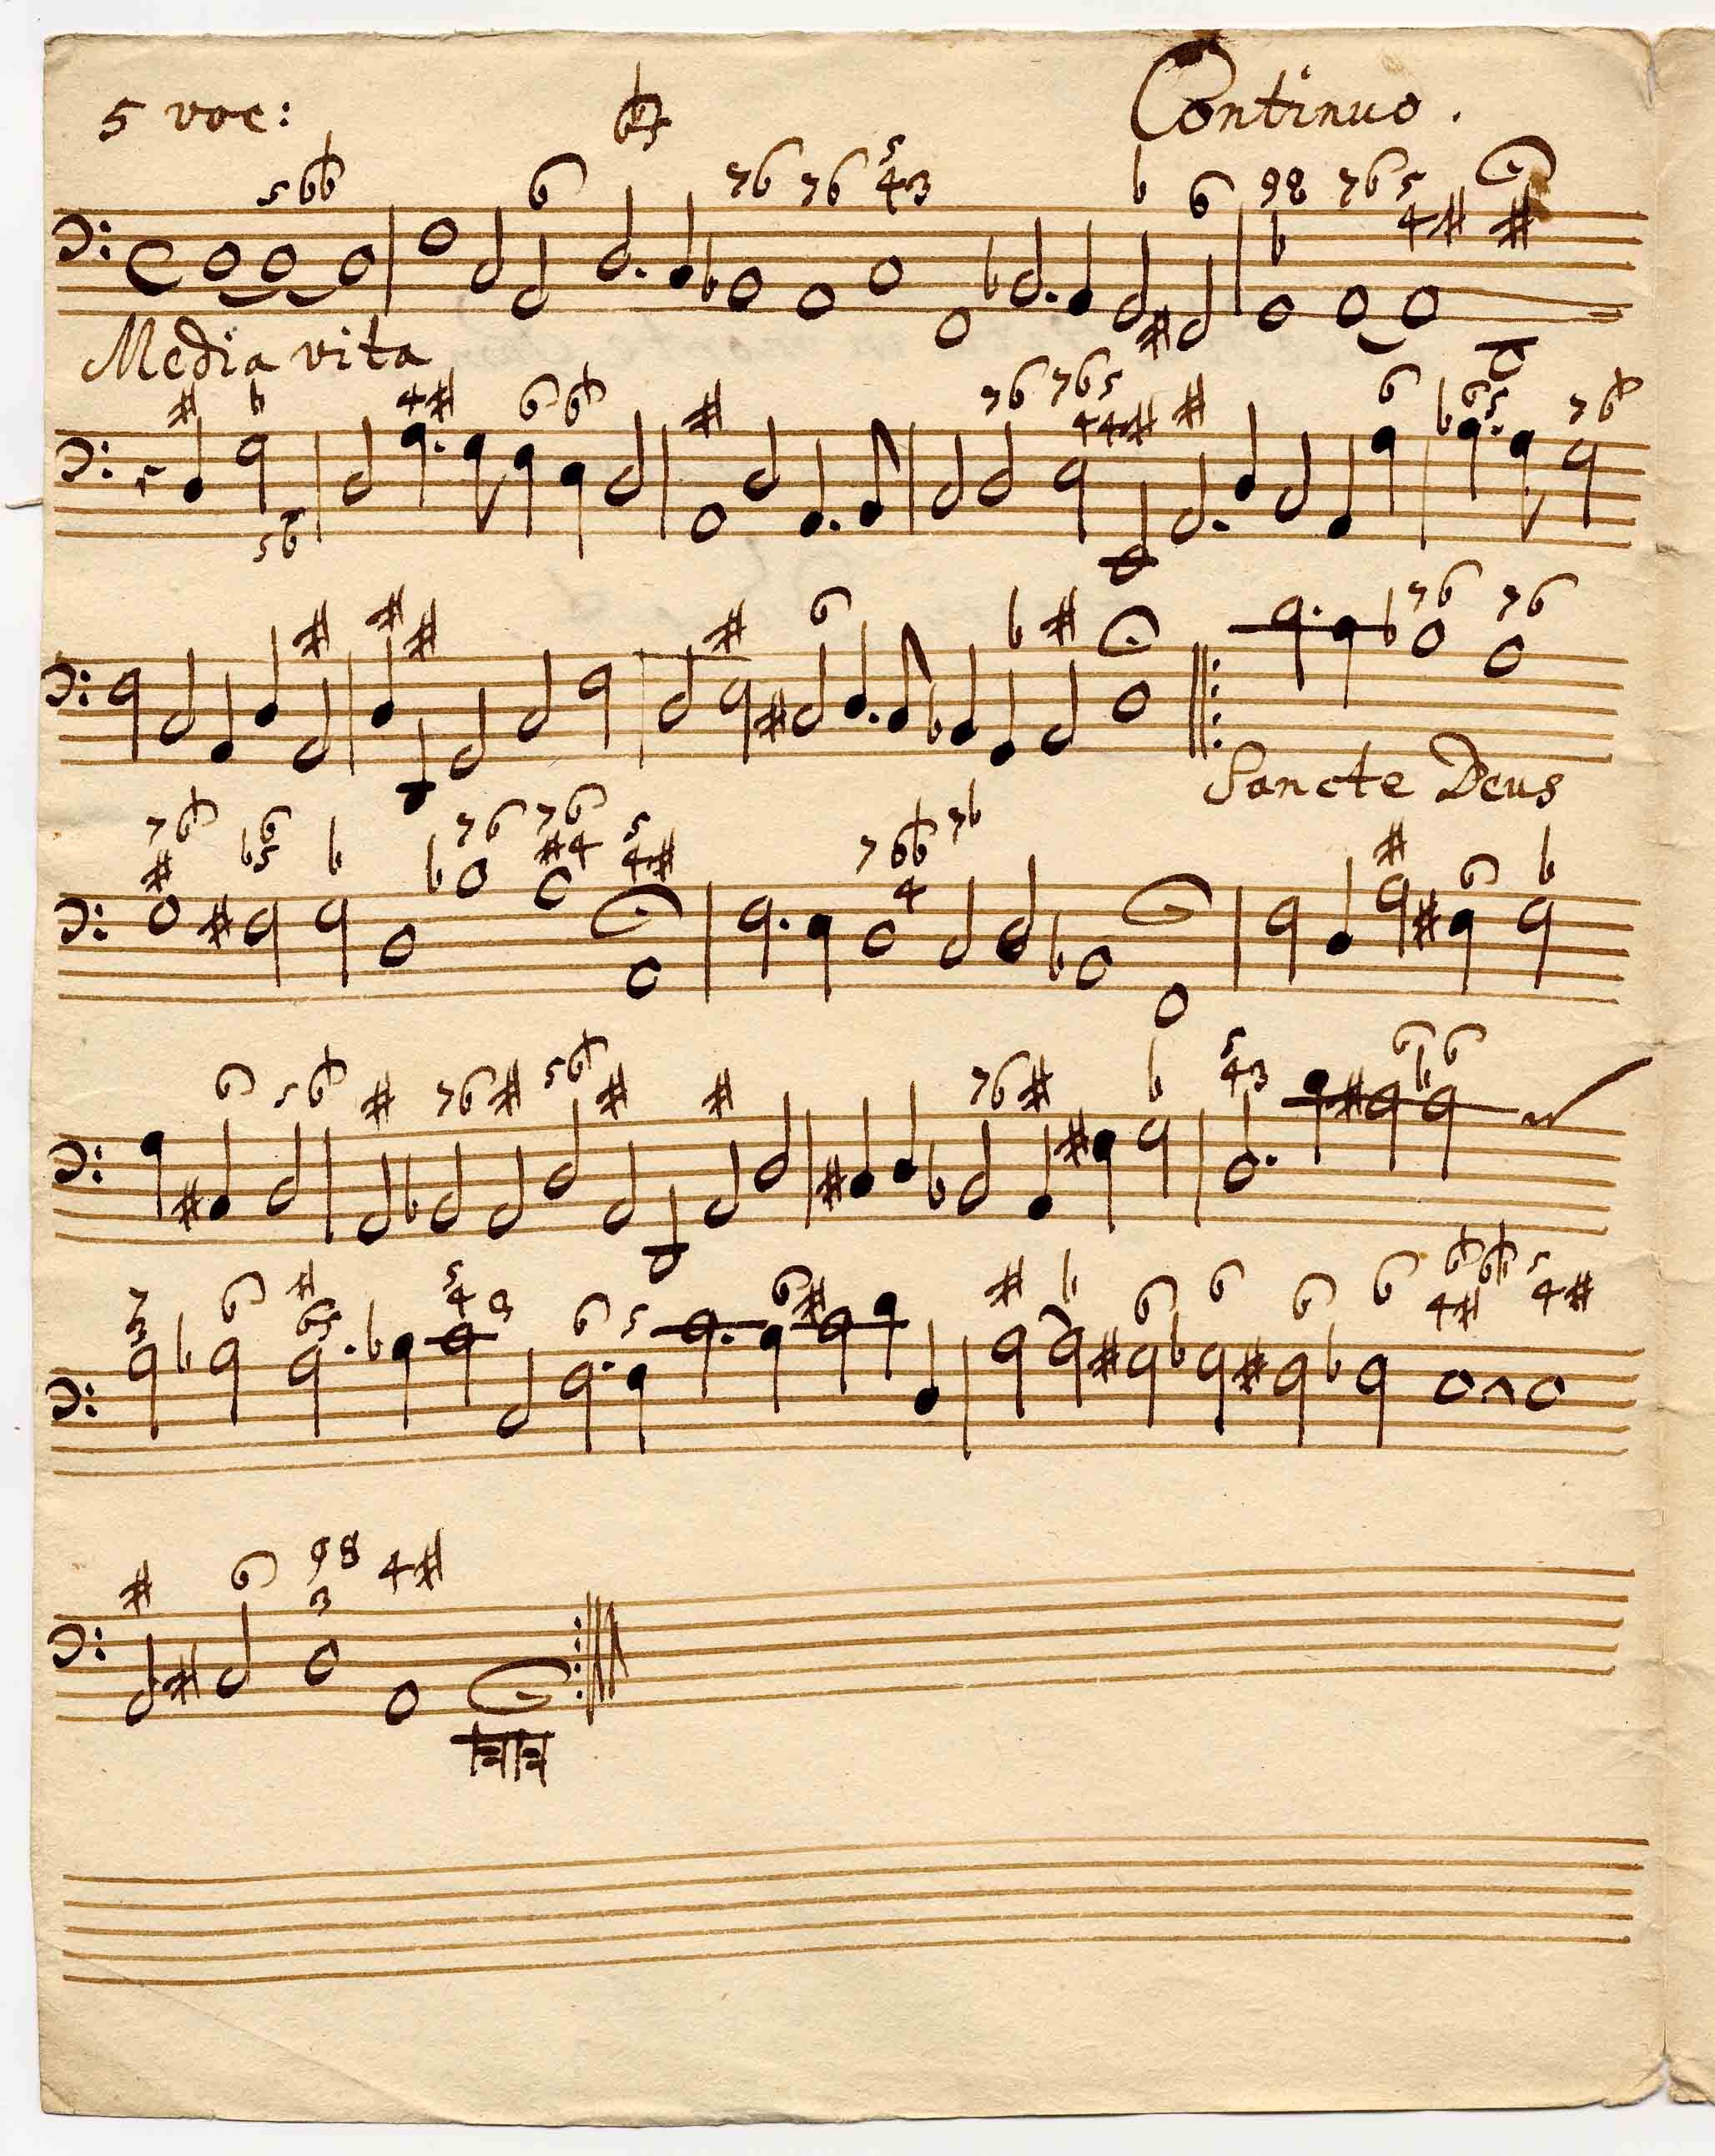 5 voc:
Continuo.
Media vita
Sancte Deus